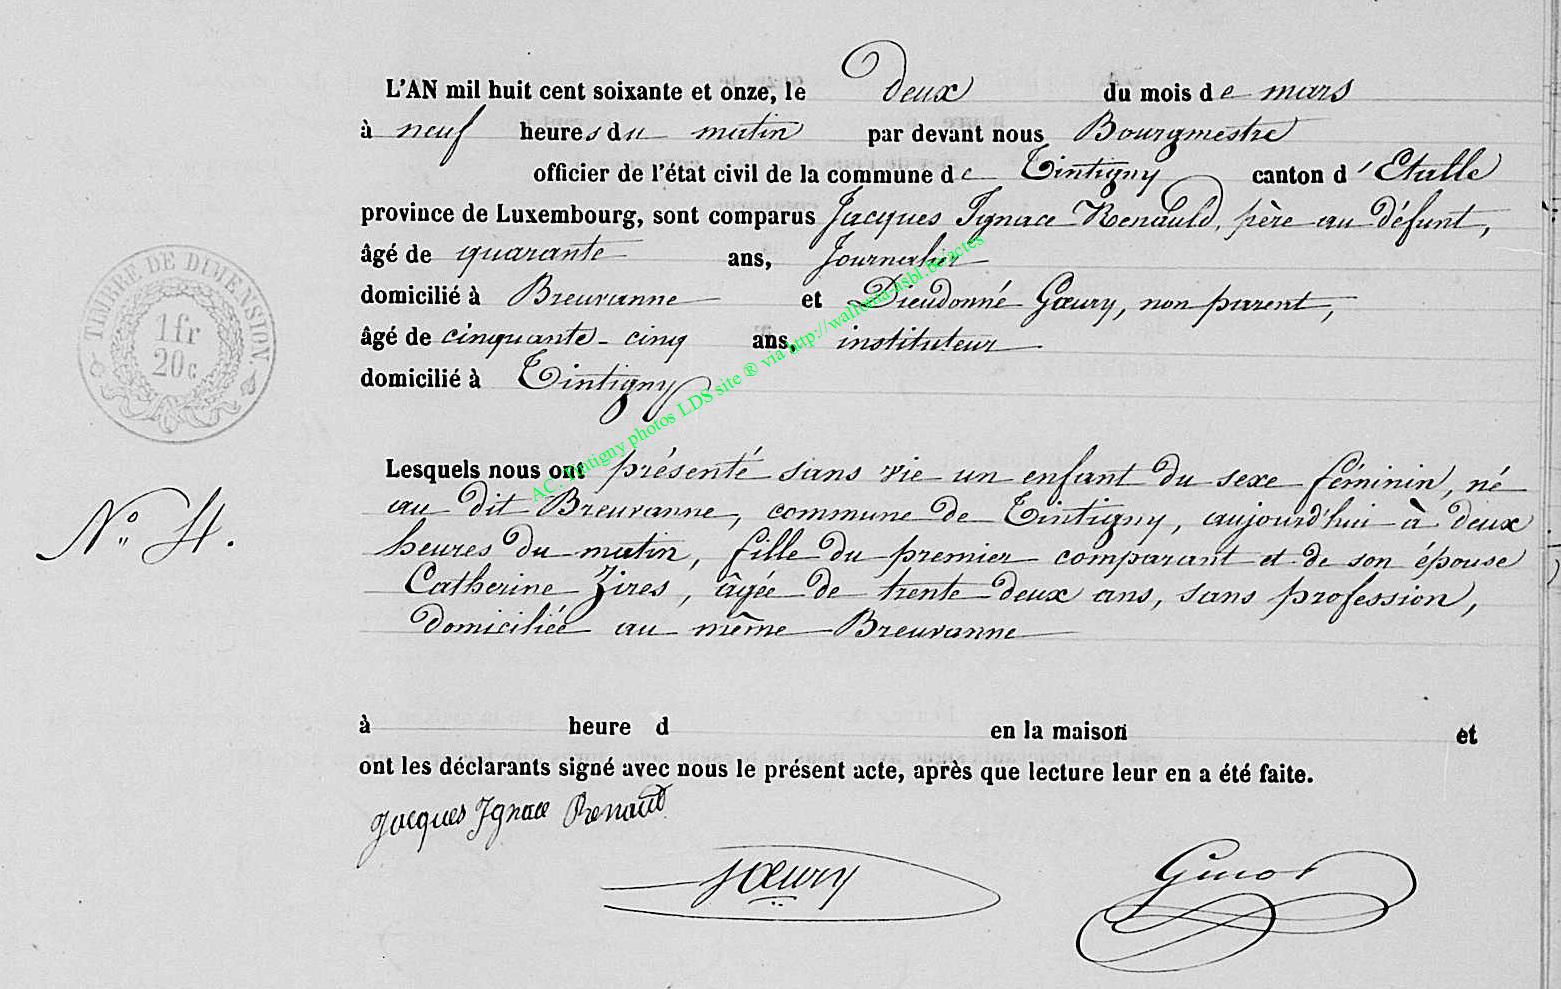 L'AN mil huit cent soixante et onze, le deux du mois de mars
à neuf heures du matin par devant nous Bourgmestre
officier de l'état civil de la commune de Tintigny canton d'Etalle
province de Luxembourg, sont comparus Jacques Ignace Renauld, père au défunt,
âgé de quarante ans, Journalier
domicilié à Breuvanne et Dieudonné Gœury, non parent,
âgé de cinquante-cinq ans, instituteur
domicilié à Tintigny
TIMBRE DE DIMENSION
1 fr
20 c
AC. Tintigny photos LDS site ® via http://wallonia-asbl.be/actes
Lesquels nous ont présenté sans vie un enfant du sexe féminin, né
au dit Breuvanne, commune de Tintigny, aujourd'hui à deux
heures du matin, fille du premier comparant et de son épouse
Catherine Zires, âgée de trente deux ans, sans profession,
domiciliée au même Breuvanne
N° 4.
à heure d en la maison et
ont les déclarants signé avec nous le présent acte, après que lecture leur en a été faite.
Jacques Ignace Renauld
Gœury